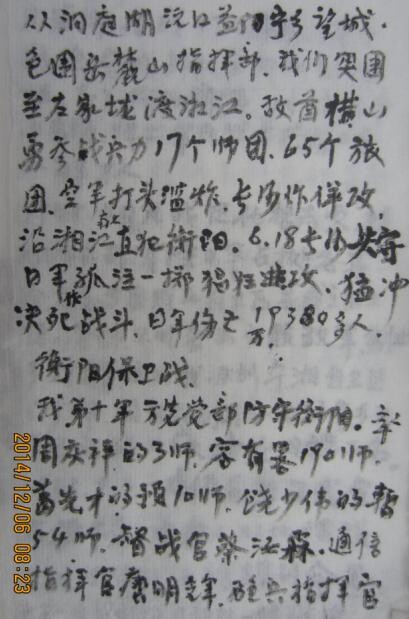 从洞庭湖沅江益阳宁乡望城.
包围岳麓山指挥部.我们突围
至左家垅渡湘江.敌酋横山
勇参战兵力17个师团.65个旅
团.空军打头滥炸.长沙作佯攻,
沿湘江南上直犯衡阳.6.18长沙失守
日军孤注一掷猖狂进攻.猛冲
决死作战斗.日军伤亡19380多人
衡阳保卫战.
我第十军方先觉部防守衡阳.
周庆祥的3师.容有略190师.
葛先才的预10师.饶少伟的暂
54师.督战官蔡汝霖.通信
指挥官唐明.炮兵指挥官
2014/12/06 08:23